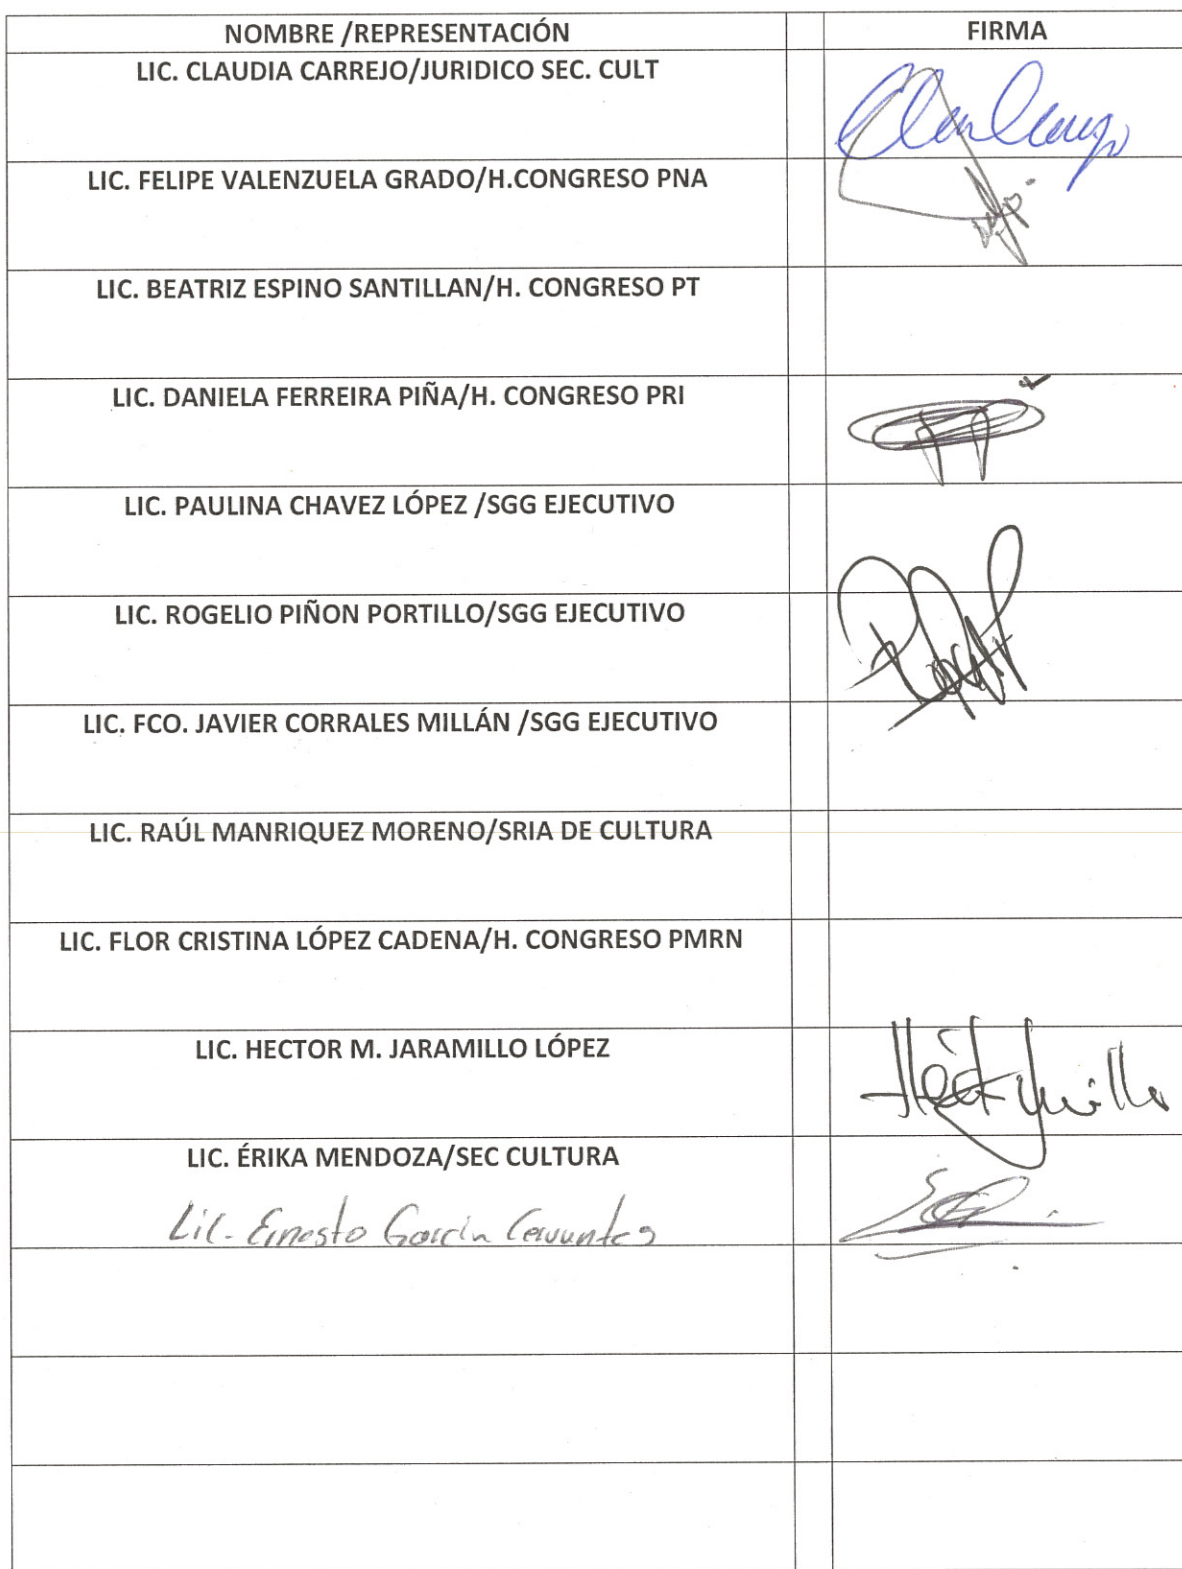 NOMBRE /REPRESENTACIÓN FIRMA
LIC. CLAUDIA CARREJO/JURIDICO SEC. CULT
LIC. FELIPE VALENZUELA GRADO/H.CONGRESO PNA
LIC. BEATRIZ ESPINO SANTILLAN/H. CONGRESO PT
LIC. DANIELA FERREIRA PIÑA/H. CONGRESO PRI
LIC. PAULINA CHAVEZ LÓPEZ /SGG EJECUTIVO
LIC. ROGELIO PIÑON PORTILLO/SGG EJECUTIVO
LIC. FCO. JAVIER CORRALES MILLÁN /SGG EJECUTIVO
LIC. RAÚL MANRIQUEZ MORENO/SRIA DE CULTURA
LIC. FLOR CRISTINA LÓPEZ CADENA/H. CONGRESO PMRN
LIC. HECTOR M. JARAMILLO LÓPEZ
LIC. ÉRIKA MENDOZA/SEC CULTURA
Lic. Ernesto García Cervantes